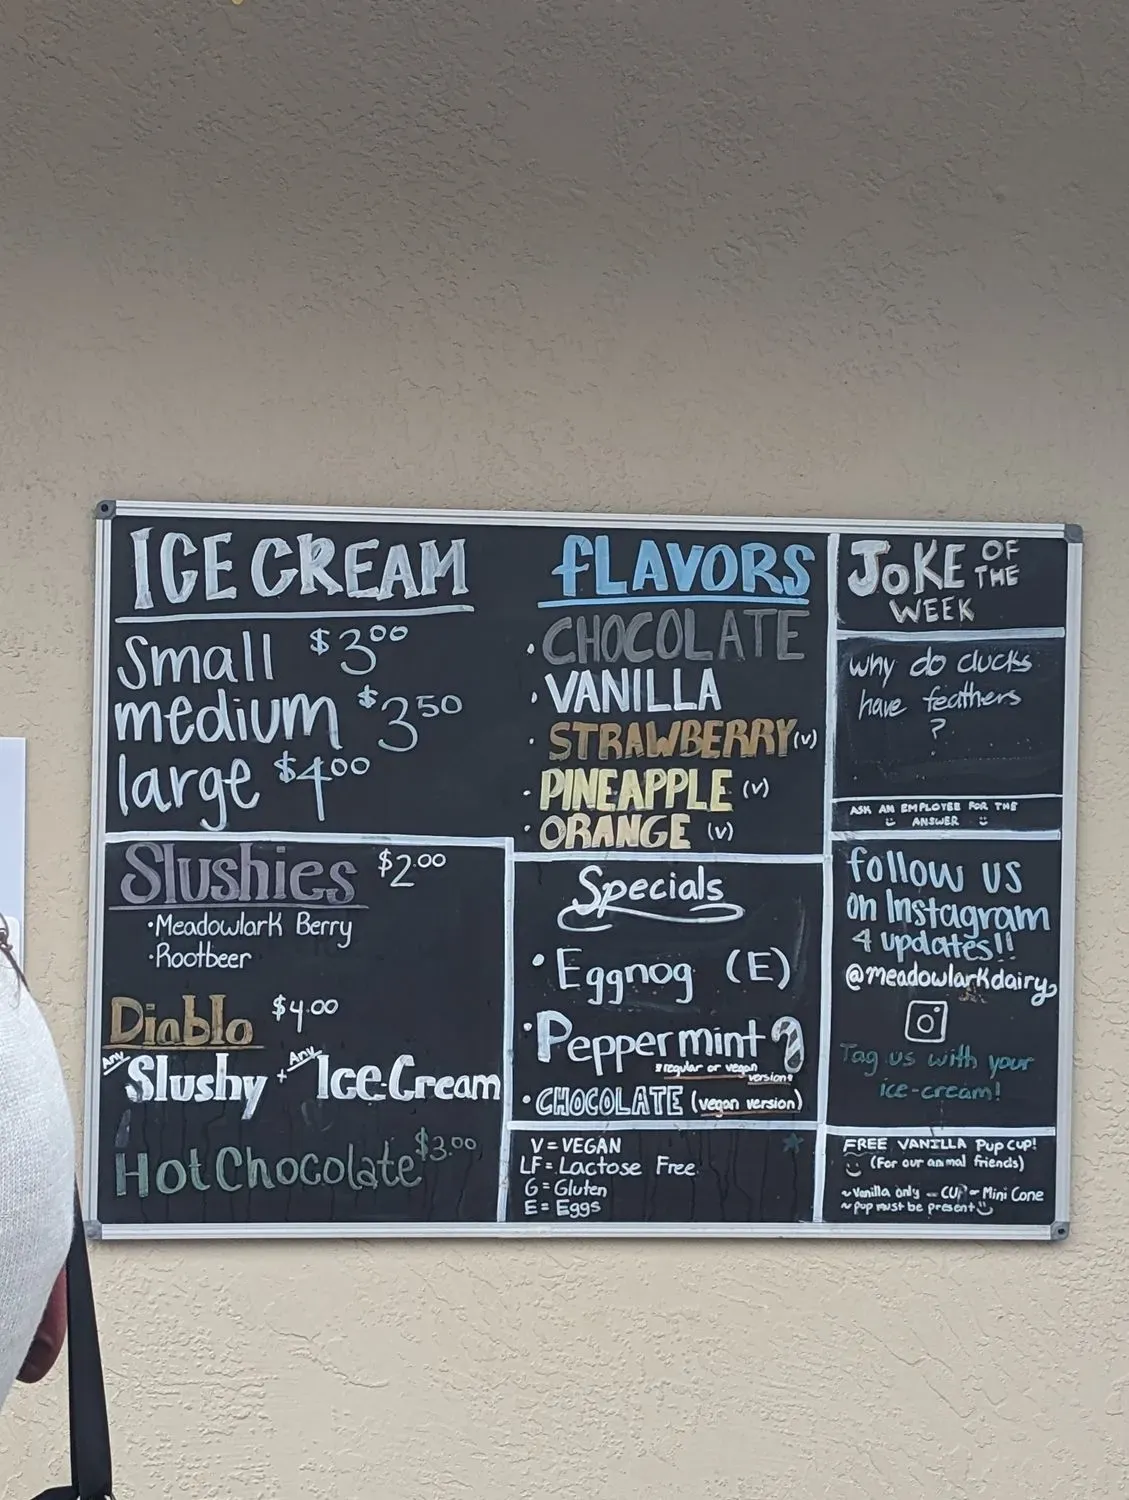 ICE CREAM
Small $3.00
medium $3.50
large $4.00
FLAVORS
· CHOCOLATE
· VANILLA
· STRAWBERRY (V)
· PINEAPPLE (V)
· ORANGE (V)
JOKE OF THE
WEEK
Why do ducks
have feathers
?
ASK AN EMPLOYEE FOR THE
ANSWER
Slushies $2.00
·Meadowlark Berry
·Rootbeer
Diablo $4.00
Any Slushy + Any Ice Cream
Hot Chocolate $3.00
Specials
· Eggnog (E)
· Peppermint
*regular or vegan
version*
· CHOCOLATE (vegan version)
V = VEGAN
LF = Lactose Free
G = Gluten
E = Eggs
follow us
on Instagram
4 updates!!
@meadowlarkdairy
Tag us with your
ice-cream!
FREE VANILLA PUP CUP!
(For our animal friends)
~ Vanilla only - CUP or Mini Cone
~ pup must be present